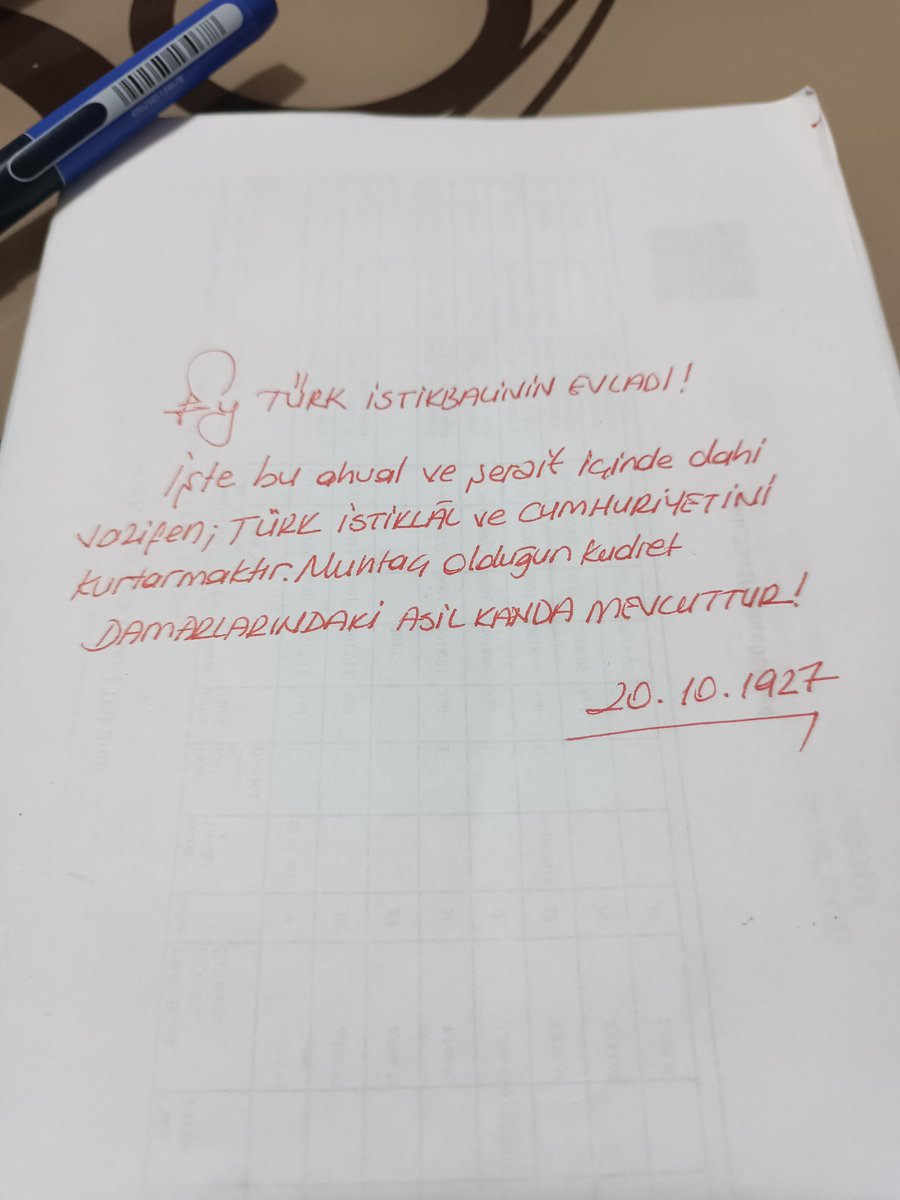 Ey TÜRK İSTİKBALİNİN EVLADI!
İşte bu ahval ve şerait içinde dahi
vazifen; TÜRK İSTİKLÂL ve CUMHURİYETİNİ
kurtarmaktır. Muhtaç olduğun kudret
DAMARLARINDAKİ ASİL KANDA MEVCUTTUR!
20.10.1927